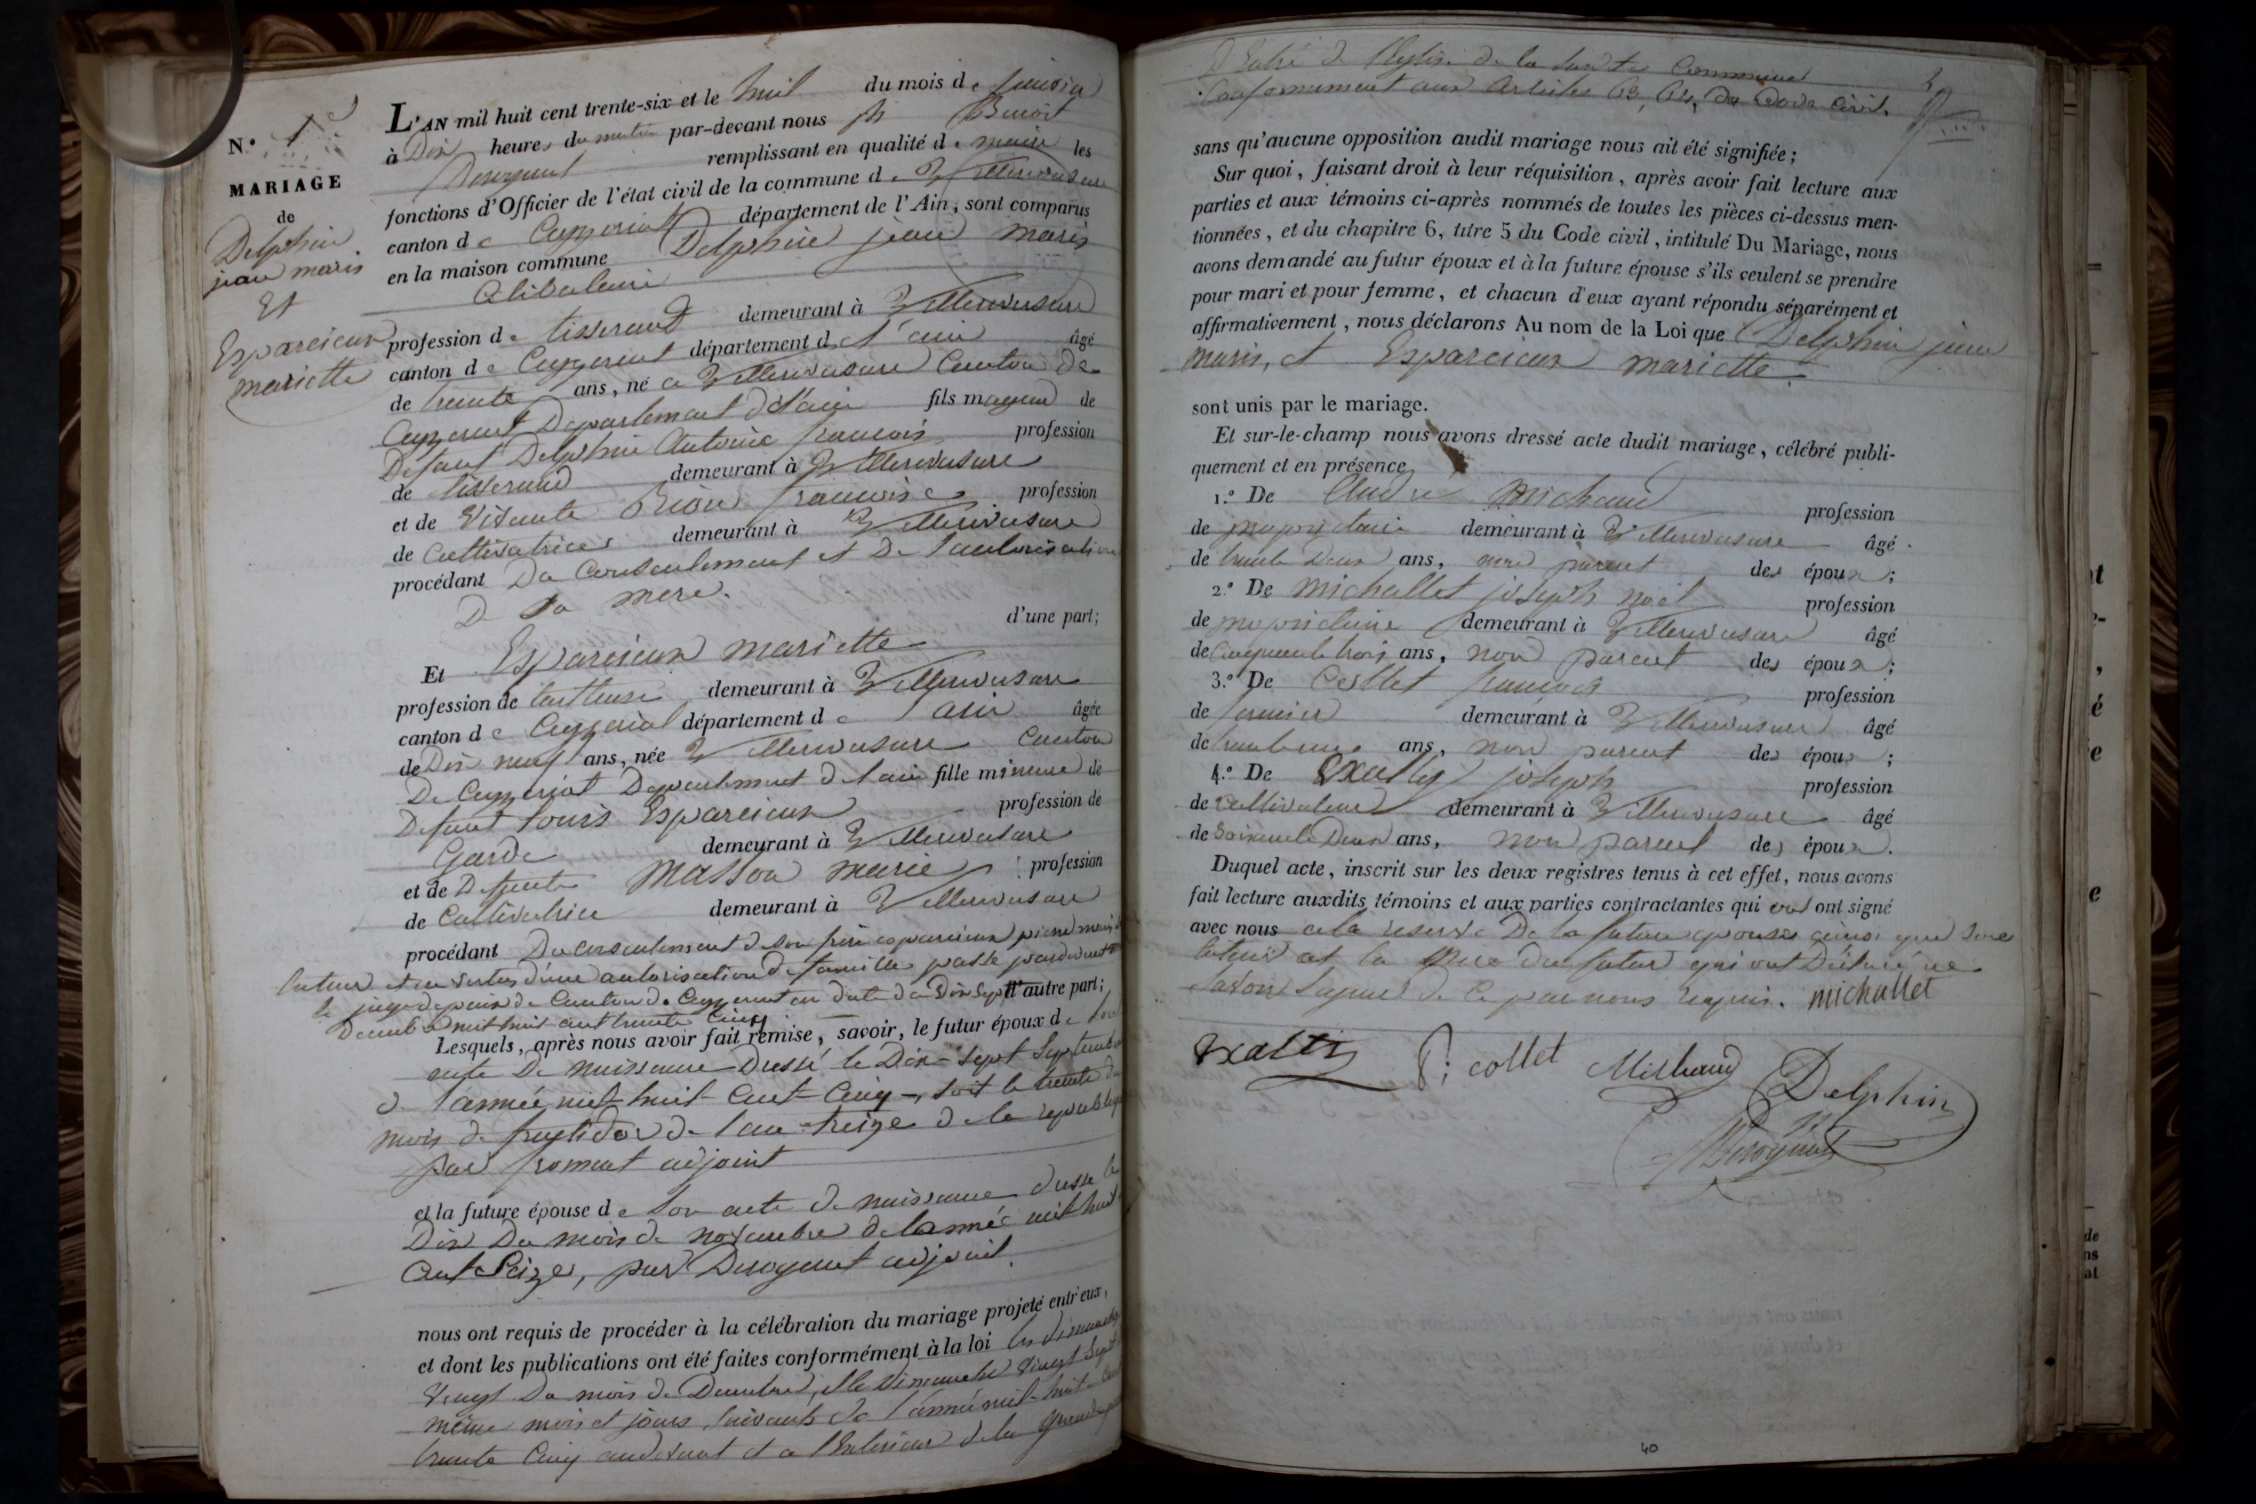 N.º 1
MARIAGE
de
Delphin
jean marie
Et
Esparcieux
mariette
L'AN mil huit cent trente-six et le huit du mois de janvier
à Dix heures du matin par-devant nous Benoit
remplissant en qualité de maire les
fonctions d'Officier de l'état civil de la commune de Villereversure
canton de Ceyzeriat département de l'Ain, sont comparus
en la maison commune Delphin jean marie
Célibataire
profession de tisserand demeurant à Villereversure
canton de Ceyzeriat département de l'ain âgé
de trente ans, né a Villereversure Canton De
Ceyzeriat Département de l'ain fils majeur de
Defunt Delphin Antoine francois profession
de tisserand demeurant à Villereversure
et de Vivante francoise profession
de Cultivatrice demeurant à Villereversure
procédant Du Consentement et De l'autorisation
De sa mere.
d'une part;
Et Esparcieux mariette
profession de demeurant à Villereversure
canton de Ceyzeriat département de l'ain âgée
de Dix neuf ans, née Villereversure Canton
De Ceyzeriat Departement de l'ain fille mineure de
Defunt Louis Esparcieux profession de
Garde demeurant à Villereversure
et de Defunte Masson marie profession
de Cultivatrice demeurant à Villereversure
procédant Du consentement de son frère esparcieux pierre marie
tuteur et en vertu d'une autorisation de famille passé pardevant
le juge de paix du Canton de Ceyzeriat en date du Dix sept d'autre part;
Decembre mil huit cent trente cinq
Lesquels, après nous avoir fait remise, savoir, le futur époux de son
acte De naissance Dressé le Dix-sept Septembre
de l'année mil huit Cent Cinq, soit le trente du
mois de fructidor de l'an treize de la republique
par froment adjoint
et la future épouse de son acte de naissance dressé le
Dix Du mois de novembre de l'année mil huit
Cent Seize, par Derognat adjoint.
nous ont requis de procéder à la célébration du mariage projeté entr'eux,
et dont les publications ont été faites conformément à la loi les dimanches
Vingt Du mois de Decembre, et le Dimanche Vingt Sept
même mois et jours suivants de l'année mil huit Cent
trente Cinq audevant et a l'Exterieur de la grande porte
D'Entré de l'Eglise de la susdite Commune
Conformement aux Articles 63, 64, du Code Civil.
sans qu'aucune opposition audit mariage nous ait été signifiée;
Sur quoi, faisant droit à leur réquisition, après avoir fait lecture aux
parties et aux témoins ci-après nommés de toutes les pièces ci-dessus men-
tionnées, et du chapitre 6, titre 5 du Code civil, intitulé Du Mariage, nous
avons demandé au futur époux et à la future épouse s'ils veulent se prendre
pour mari et pour femme, et chacun d'eux ayant répondu séparément et
affirmativement, nous déclarons Au nom de la Loi que Delphin jean
marie, et Esparcieux mariette.
sont unis par le mariage.
Et sur-le-champ nous avons dressé acte dudit mariage, célébré publi-
quement et en présence
1.º De michaud profession
de proprietaire demeurant à Villereversure âgé
de trente Deux ans, non parent des époux;
2.º De Michallet joseph noel profession
de proprietaire demeurant à Villereversure âgé
de Cinquante trois ans, non parent des époux;
3.º De Collet francois profession
de fermier demeurant à Villereversure âgé
de ans, non parent des époux;
4.º De joseph profession
de Cultivateur demeurant à Villereversure âgé
de Soixante Deux ans, non parent des époux.
Duquel acte, inscrit sur les deux registres tenus à cet effet, nous avons
fait lecture auxdits témoins et aux parties contractantes qui ont signé
avec nous a la reserve De la future epouse ainsi que son
tuteur et la Mere du futur qui ont Déclaré ne
Savoir Signer de ce par nous requis. michallet
f; collet Michaud Delphin
Derognat
40